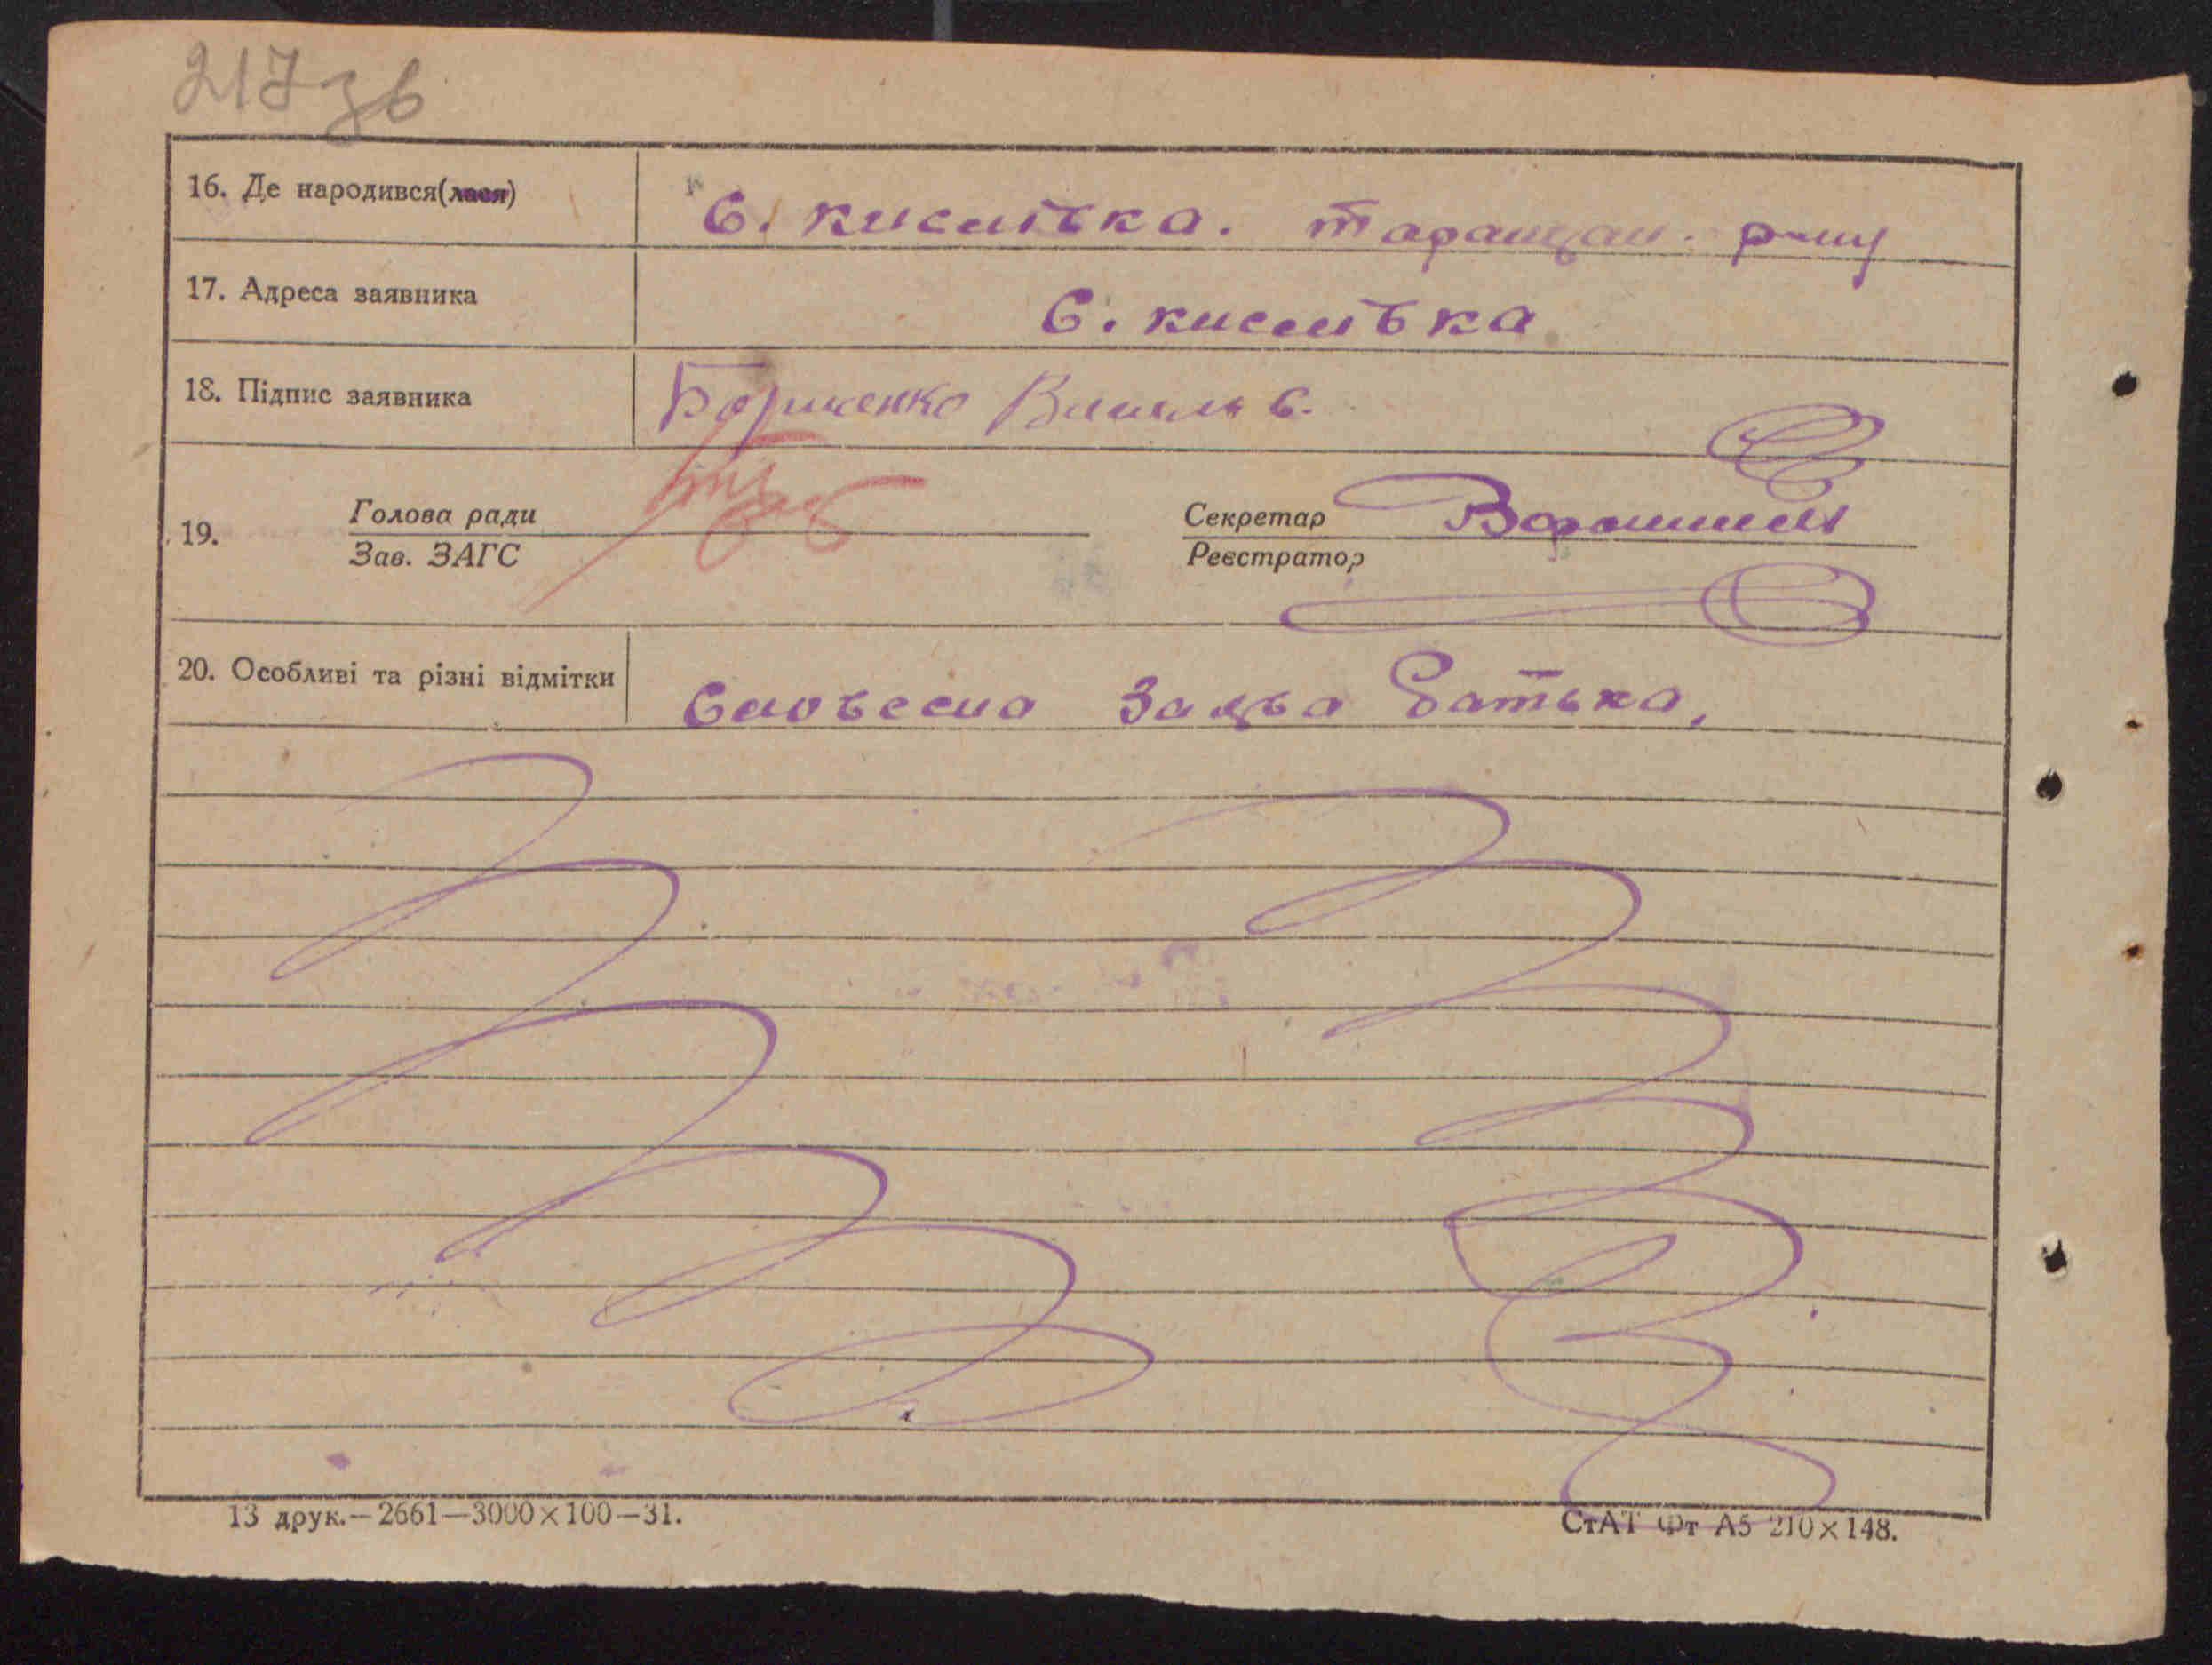 217 зв
16. Де народився(лася) С. Кислівка. Таращан. р-ну
17. Адреса заявника С. Кислівка
18. Підпис заявника Василь С.
19. Голова ради
Зав. ЗАГС
Секретар
Реєстратор
20. Особливі та різні відмітки Словесна Заява Батька.
13 друк.—2661—3000×100—31.
СтАТ Фт А5 210×148.